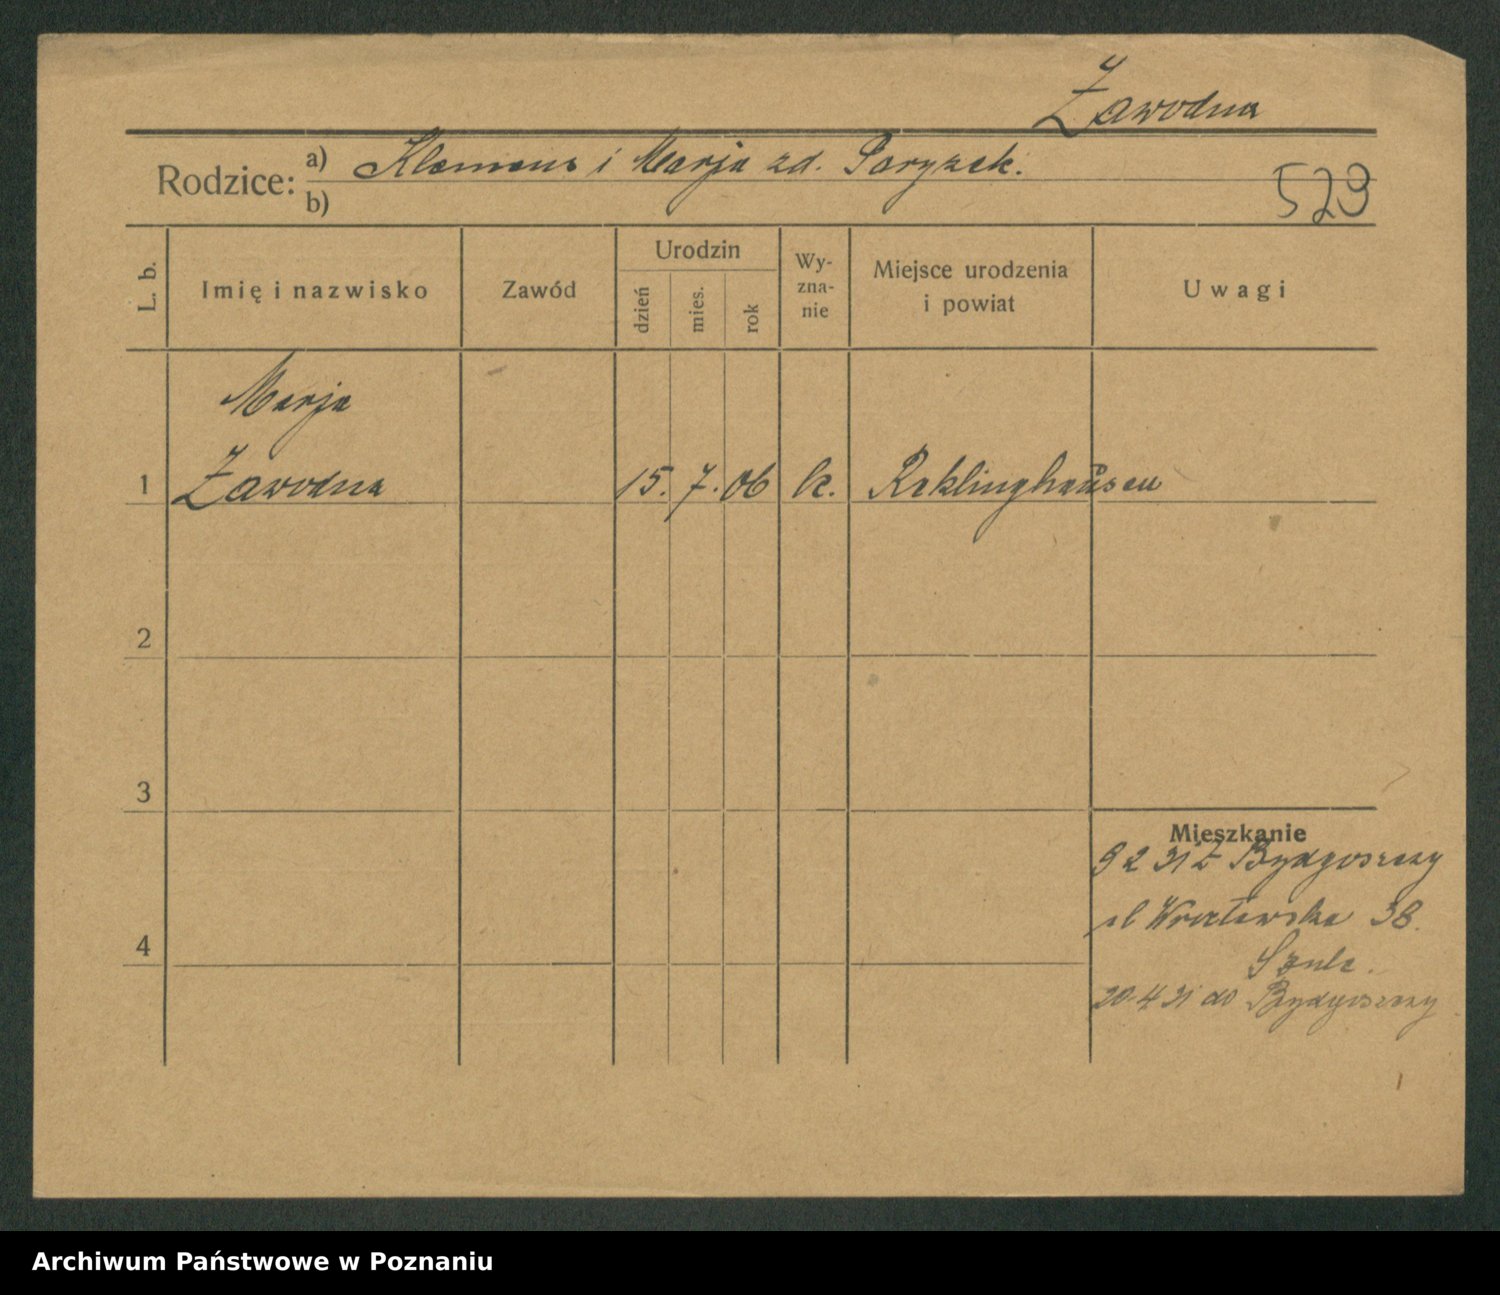 Zawodna
Rodzice: a) Klemens i Marja zd. Paryzek.
b)
529
L. b.
Imię i nazwisko
Zawód
Urodzin
dzień
mies.
rok
Wy-
zna-
nie
Miejsce urodzenia
i powiat
Uwagi
Marja
1 Zawodna 15. 7. 06 k. Reklinghausen
2
3
Mieszkanie
9 2 31 Z Bydgoszczy
ul Wrocławska 38.
4
Szulc.
20.4 31 do Bydgoszczy
Archiwum Państwowe w Poznaniu